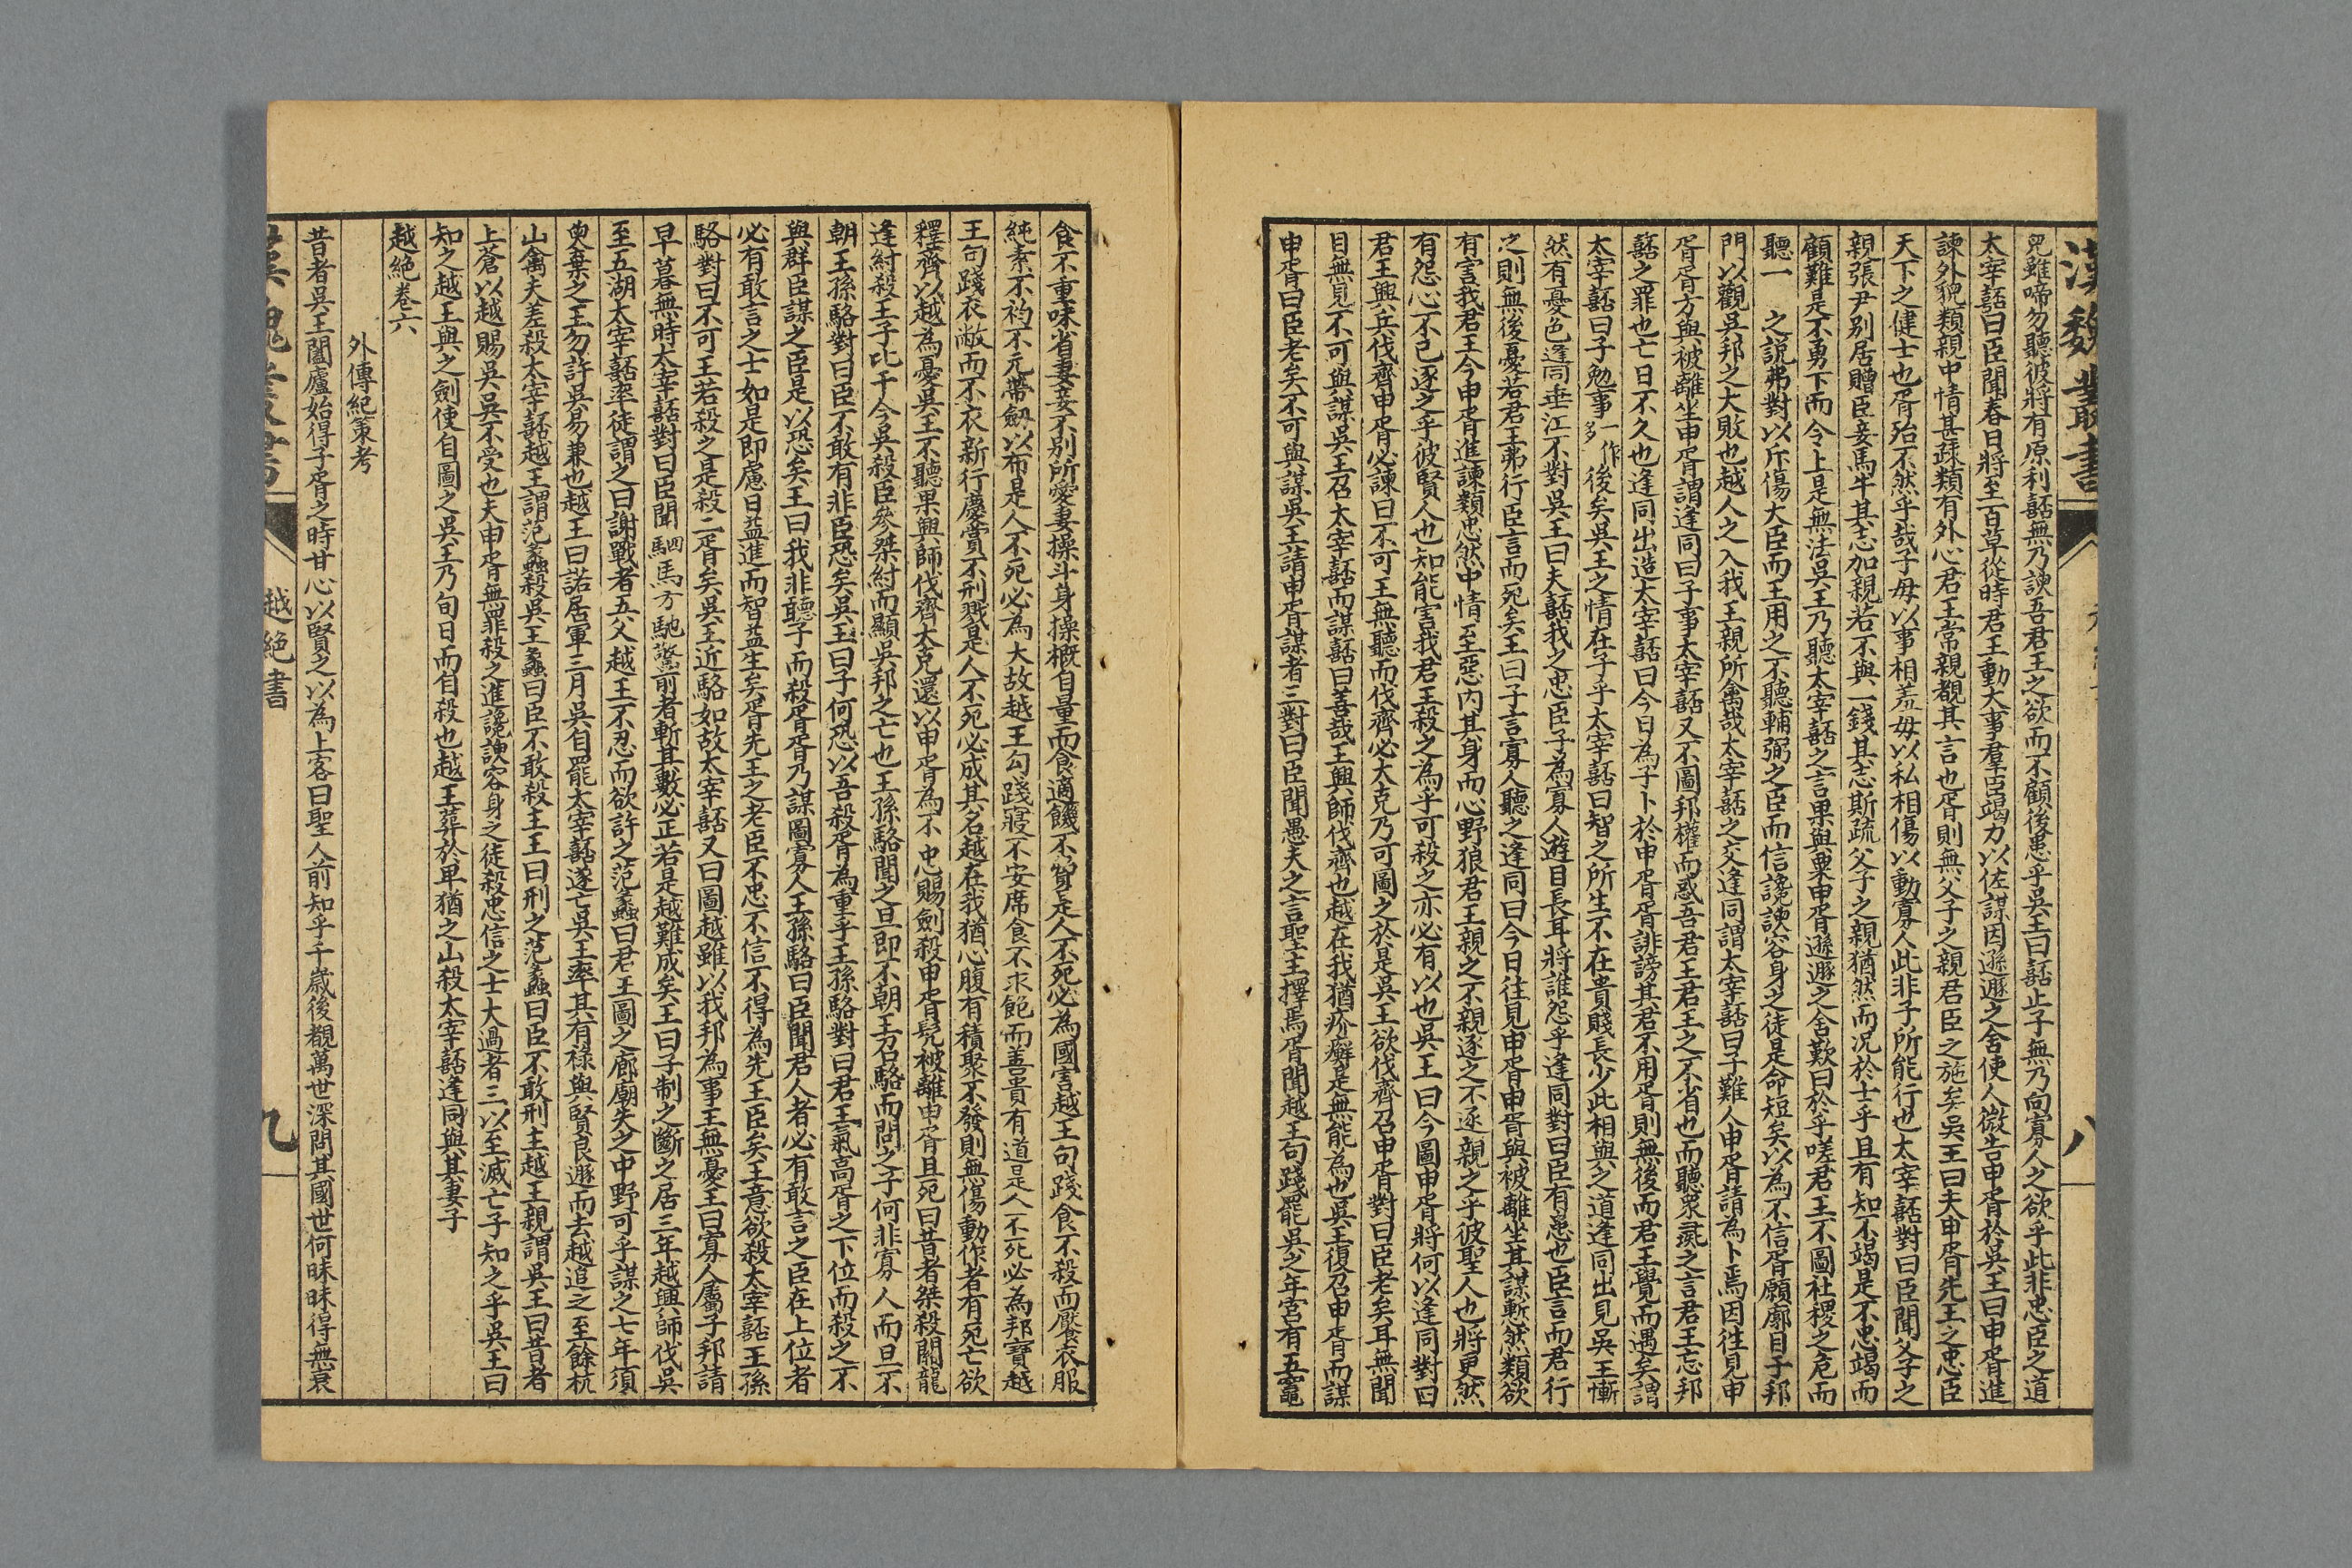 漢魏叢書
八
兒雖啼勿聽彼將有原利嚭無乃諛吾君王之欲而不顧後患乎吳王曰嚭止子無乃向寡人之欲乎此非忠臣之道
太宰嚭曰臣聞春日將至百草從時君王動大事羣臣竭力以佐謀因遜遯之舍使人微告申胥於吳王曰申胥進
諫外貌類親中情甚疎類有外心君王常親覩其言也胥則無父子之親君臣之施矣吳王曰夫申胥先王之忠臣
天下之健士也胥殆不然乎哉子毋以事相差毋以私相傷以動寡人此非子所能行也太宰嚭對曰臣聞父子之
親張尹别居贈臣妾馬牛其志加親若不與一錢其志斯疏父子之親猶然而况於士乎且有知不竭是不忠竭而
顧難是不勇下而令上是無法吳王乃聽太宰嚭之言果與粟申胥遜遯之舍歎曰於乎嗟君王不圖社稷之危而
聽一　之說弗對以斥傷大臣而王用之不聽輔弼之臣而信讒諛容身之徒是命短矣以為不信胥願廓目于邦
門以觀吳邦之大敗也越人之入我王親所禽哉太宰嚭之交逢同謂太宰嚭曰子難人申胥請為卜焉因往見申
胥胥方與被離坐申胥謂逢同曰子事太宰嚭又不圖邦權而惑吾君王君王之不省也而聽衆彘之言君王忘邦
嚭之罪也亡日不久也逢同出造太宰嚭曰今日為子卜於申胥胥誹謗其君不用胥則無後而君王覺而遇矣謂
太宰嚭曰子勉事一作多後矣吳王之情在子乎太宰嚭曰智之所生不在貴賤長少此相與之道逢同出見吳王慚
然有憂色逢同垂江不對吳王曰夫嚭我之忠臣子為寡人遊目長耳將誰怨乎逢同對曰臣有患也臣言而君行
之則無後憂若君王弗行臣言而死矣王曰子言寡人聽之逢同曰今日往見申胥申胥與被離坐其謀慙然類欲
有害我君王今申胥進諫類忠然中情至惡内其身而心野狼君王親之不親逐之不逐親之乎彼聖人也將更然
有怨心不已逐之乎彼賢人也知能害我君王殺之為乎可殺之亦必有以也吳王曰今圖申胥將何以逢同對曰
君王興兵伐齊申胥必諫曰不可王無聽而伐齊必大克乃可圖之於是吳王欲伐齊召申胥對曰臣老矣耳無聞
目無見不可與謀吳王召太宰嚭而謀嚭曰善哉王興師伐齊也越在我猶疥癬是無能為也吳王復召申胥而謀
申胥曰臣老矣不可與謀吳王請申胥謀者三對曰臣聞愚夫之言聖主擇焉胥聞越王句踐罷吳之年宮有五竈
食不重味省妻妾不别所愛妻操斗身操概自量而食適饑不費是人不死必為國害越王句踐食不殺而饜衣服
純素不袀不元帶劒以布是人不死必為大故越王勾踐寢不安席食不求飽而善貴有道是人不死必為邦寶越
王句踐衣敝而不衣新行慶賞不刑戮是人不死必成其名越在我猶心腹有積聚不發則無傷動作者有死亡欲
釋齊以越為憂吳王不聽果興師伐齊大克還以申胥為不忠賜劍殺申胥髡被離申胥且死曰昔者桀殺關龍
逢紂殺王子比干今吳殺臣參桀紂而顯吳邦之亡也王孫駱聞之旦即不朝王召駱而問之子何非寡人而旦不
朝王孫駱對曰臣不敢有非臣恐矣吳王曰子何恐以吾殺胥為重乎王孫駱對曰君王氣高胥之下位而殺之不
與群臣謀之臣是以恐矣王曰我非聽子而殺胥胥乃謀圖寡人王孫駱曰臣聞君人者必有敢言之臣在上位者
必有敢言之士如是即慮日益進而智益生矣胥先王之老臣不忠不信不得為先王臣矣王意欲殺太宰嚭王孫
駱對曰不可王若殺之是殺二胥矣吳王近駱如故太宰嚭又曰圖越雖以我邦為事王無憂王曰寡人屬子邦請
早暮無時太宰嚭對曰臣聞駟馬方馳驚前者斬其數必正若是越難成矣王曰子制之斷之居三年越興師伐吳
至五湖太宰嚭率徒謂之曰謝戰者五父越王不忍而欲許之范蠡曰君王圖之廊廟失之中野可乎謀之七年須
臾棄之王勿許吳易兼也越王曰諾居軍三月吳自罷太宰嚭遂亡吳王率其有禄與賢良遯而去越追之至餘杭
山禽夫差殺太宰嚭越王謂范蠡殺吳王蠡曰臣不敢殺主王曰刑之范蠡曰臣不敢刑主越王親謂吳王曰昔者
上蒼以越賜吳吳不受也夫申胥無罪殺之進讒諛容身之徒殺忠信之士大過者三以至滅亡子知之乎吳王曰
知之越王與之劍使自圖之吳王乃旬日而自殺也越王葬於卑猶之山殺太宰嚭逢同與其妻子
越絶卷六
外傳紀策考
昔者吳王闔廬始得子胥之時甘心以賢之以為上客曰聖人前知乎千歲後覩萬世深問其國世何昧昧得無衰
越絶書
九